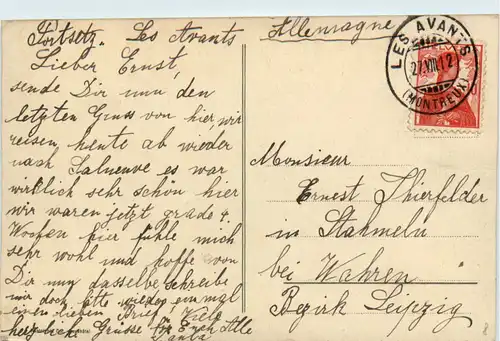 Fortsetz. Les Avants
Lieber Ernst,
sende Dir nun den
letzten Gruss von hier, wir
reisen heute ab wieder
nach Salneuve es war
wirklich sehr schön hier
wir waren jetzt grade 4
Wochen hier fühle mich
sehr wohl und hoffe von
Dir nun dasselbe schreibe
mir doch bitte wieder einmal
einen lieben Brief, Viele
herzliche Grüsse für Euch Alle
Allemagne
LES AVANTS
27.VII.12
(MONTREUX)
Monsieur
Ernest Thierfelder
in Stahmeln
bei Wahren
Bezirk Leipzig